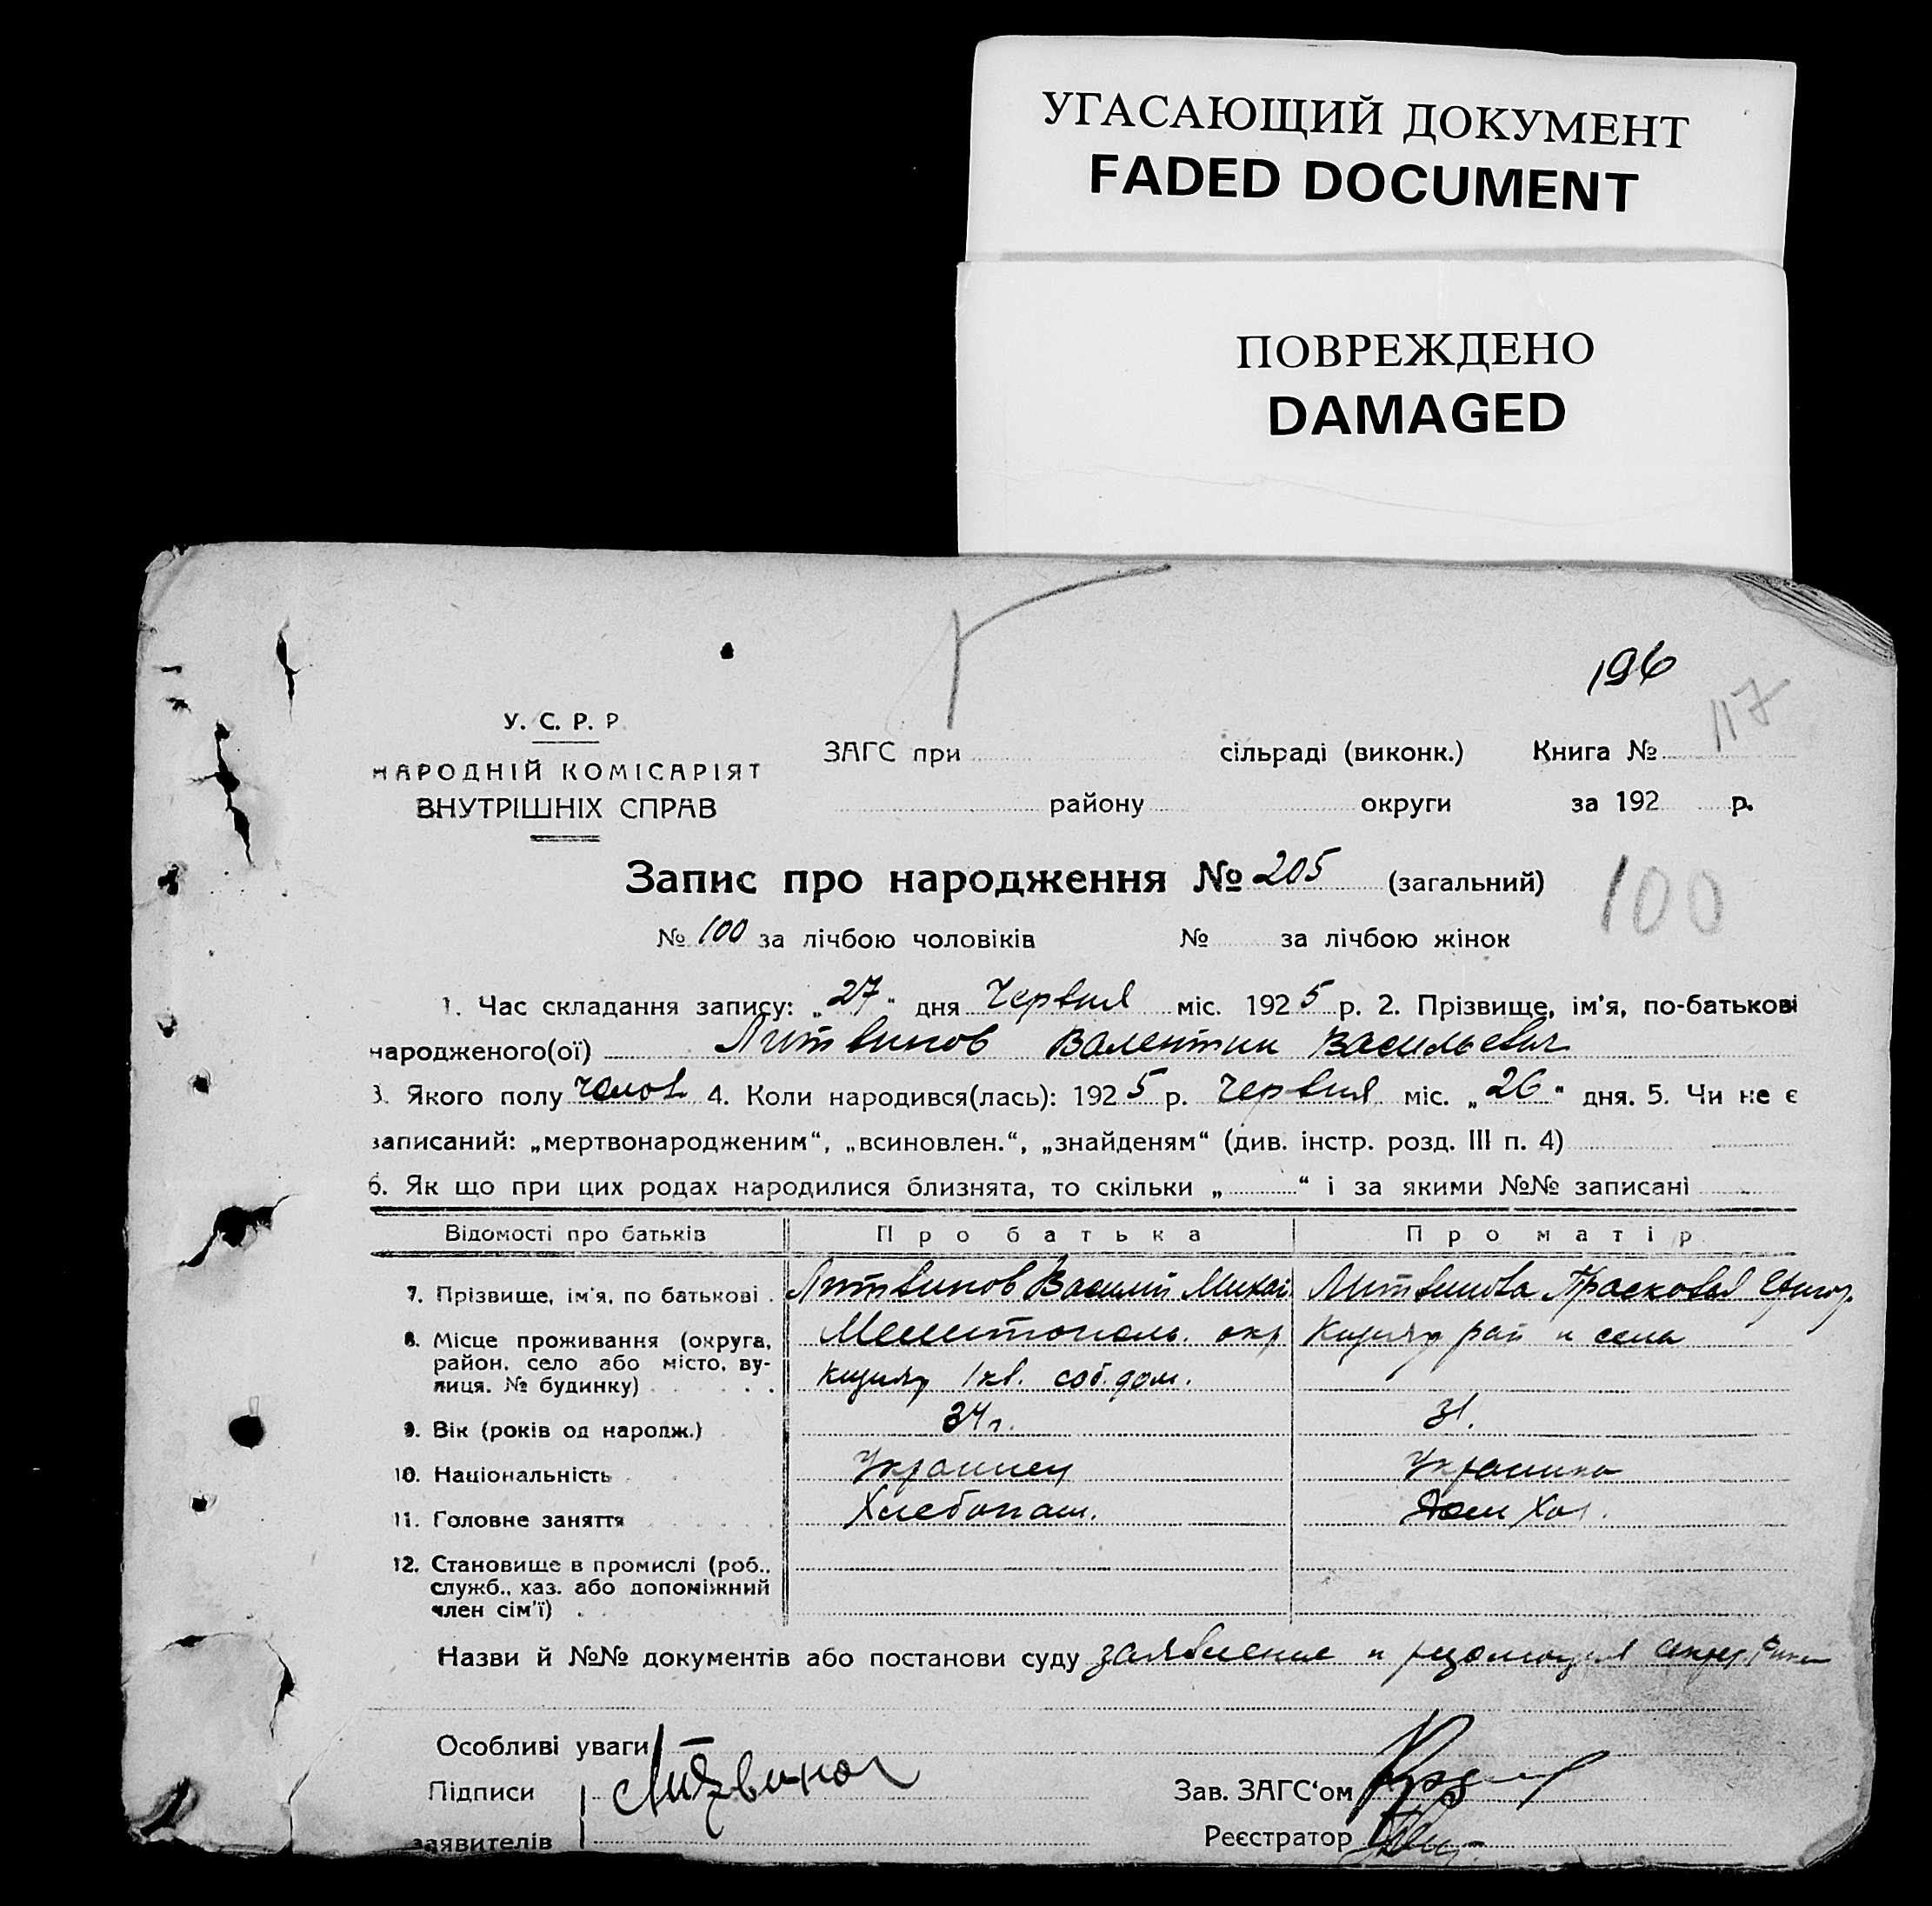 УГАСАЮЩИЙ ДОКУМЕНТ
FADED DOCUMENT
ПОВРЕЖДЕНО
DAMAGED
196
117
У. С. Р. Р.
НАРОДНІЙ КОМІСАРІЯТ
ВНУТРІШНІХ СПРАВ
ЗАГС при сільраді (виконк.) Книга №
району округи за 192 р.
Запис про народження № 205 (загальний)
100
№ 100 за лічбою чоловіків № за лічбою жінок
1. Час складання запису: „27“ дня Червня міс. 1925 р. 2. Прізвище, ім'я, по-батькові
народженого(ої) Литвинов Валентин Васильевич
3. Якого полу челов. 4. Коли народився(лась): 1925 р. Червня міс. „26“ дня. 5. Чи не є
записаний: „мертвонародженим“, „всиновлен.“, „знайденям“ (див. інстр. розд. III п. 4)
6. Як що при цих родах народилися близнята, то скільки „ “ і за якими №№ записані
Відомості про батьків Про батька Про матір
7. Прізвище, ім'я, по батькові . Литвинов Василий Михай Литвинова Прасковья
8. Місце проживання (округа, район, село або місто, вулиця, № будинку) Мелитополь. окр
1 кв. соб. дом. рай и села
9. Вік (років од народж.) 34 г. 31.
10. Національність Украинец Украинка
11. Головне заняття Хлебопаш. Дом Хоз.
12. Становище в промислі (роб.,
служб., хаз. або допоміжний
член сім'ї) .
Назви й №№ документів або постанови суду заявление и резолюция
Особливі уваги
Підписи Литвинов Зав. ЗАГС'ом
заявителів Реєстратор